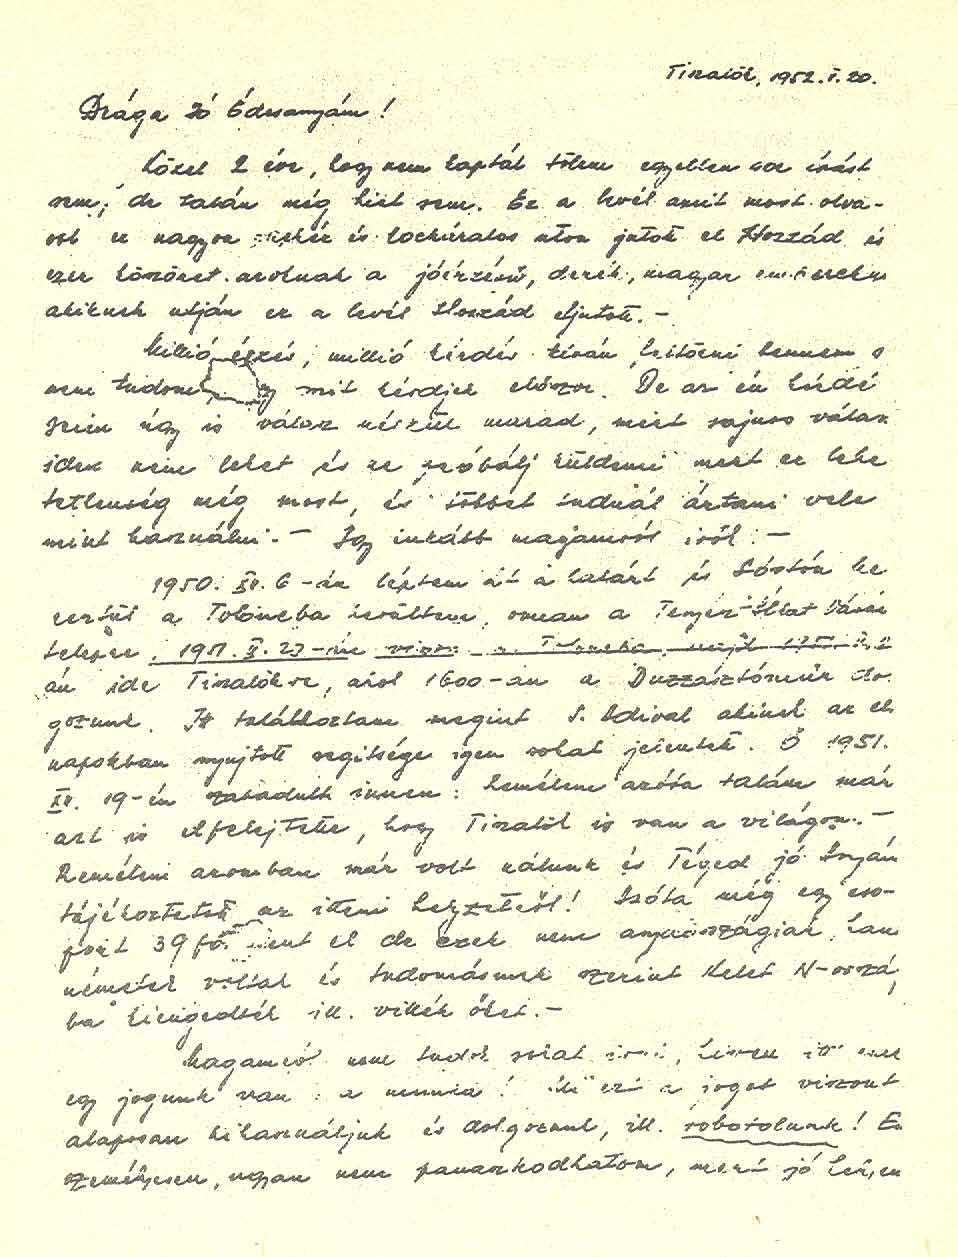 Tiszalök, 1952. I. 20.
Drága Jó Édesanyám!
Közel 2 éve, hogy nem kaptál tőlem egyetlen sor írást
sem, de talán még hírt sem. Ez a levél amit most olva-
sol ez nagyon és kockázatos úton jutott el Hozzád és
ezer köszönet azoknak a jóérzésű, derék, magyar embereknek
akiknek útján ez a levél Hozzád eljutott. –
Millió érzés, millió kérdés kíván kitörni bennem s
nem tudom, mit kérdjek először. De az én kérdé
seim úgy is válasz nélkül marad, mert sajnos válasz
ide nem lehet és ne próbálj küldeni mert ez lehe
tetlenség még most, és többet tudnál ártani vele
mint használni. – Így inkább magamról írok. –
1950. XII. 6-án léptem át a határt és Sóstón ke
resztül a Toloncba kerültem, onnan a Tenyész-Állat Vásár
telepre. 1951. II. 23-án vissza a Toloncba, majd 1951.
án ide Tiszalökre, ahol 1600-an a Duzzasztóműnél dol
gozunk. Itt találkoztam megint S. Edivel akinek az első
napokban nyújtott segítsége igen sokat jelentett. Ő 1951.
XII. 19-én szabadult innen: Remélem azóta talán már
azt is elfelejtette, hogy Tiszalök is van a világon. –
Remélem azonban már volt nálunk és Téged jó Anyám
tájékoztatott az itteni helyzetről! Azóta még egy cso-
port 39 fő ment el de ezek nem anyaországiak, han
németek voltak és tudomásunk szerint Kelet N-orszá
ba kiengedték ill. vitték őket. –
Magamról nem tudok sokat írni, hiszen itt csak
egy jogunk van: a munka! Mi ezt a jogot viszont
alaposan kihasználjuk és dolgozunk, ill. robotolunk! Én
személyesen, ugyan nem panaszkodhatom, mert jó helyen